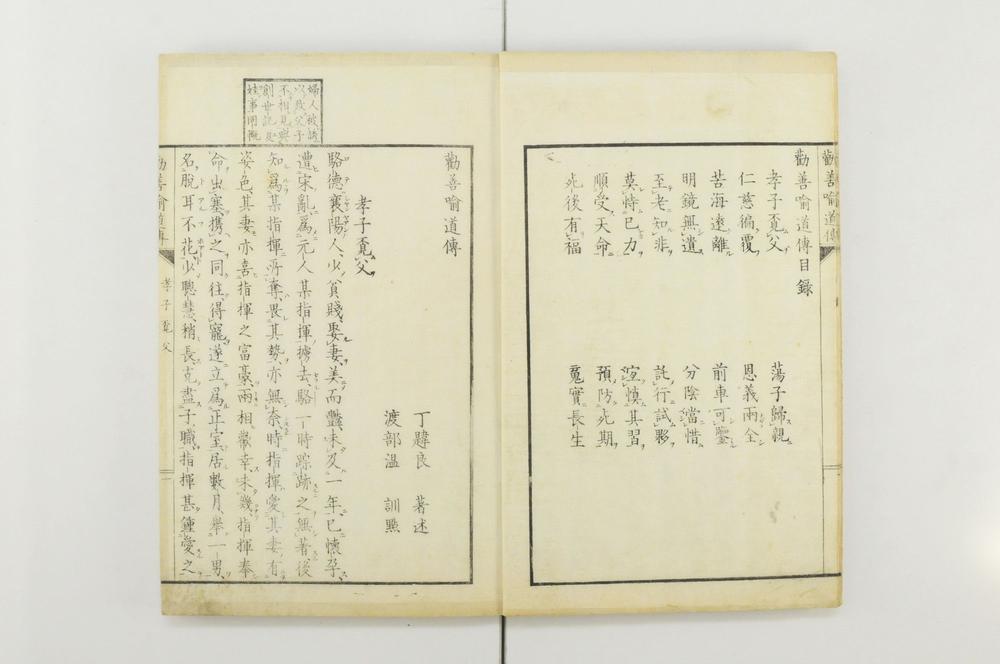 勸善喻道傳
勸善喻道傳目錄
孝子覔父 蕩子歸親
仁慈徧覆 恩義兩全
苦海遠離 前車可鑒
明鏡無遺 分陰當惜
至老知非 託行試夥
莫恃己力 宜慎其習
順受天命 預防死期
死後有福 冤實長生
婦人被
以致父子
不相見
創世記
事同
勸善喻道傳
丁韙良 著述
渡部溫 訓點
孝子覔父
駱德襄陽人少貧賤娶妻美而豔未及一年已懷孕
遭宋亂爲元人某指揮擄去駱一時踪跡之無著後
知爲某指揮所奪畏其勢亦無奈時指揮愛其妻有
姿色其妻亦喜指揮之富豪兩相幸未幾指揮奉
命出塞携之同往得寵遂立爲正室居數月舉一男
名脫耳不花少聰慧稍長克盡子職指揮甚鍾愛之
勸善喻道傳
孝子覔父
一